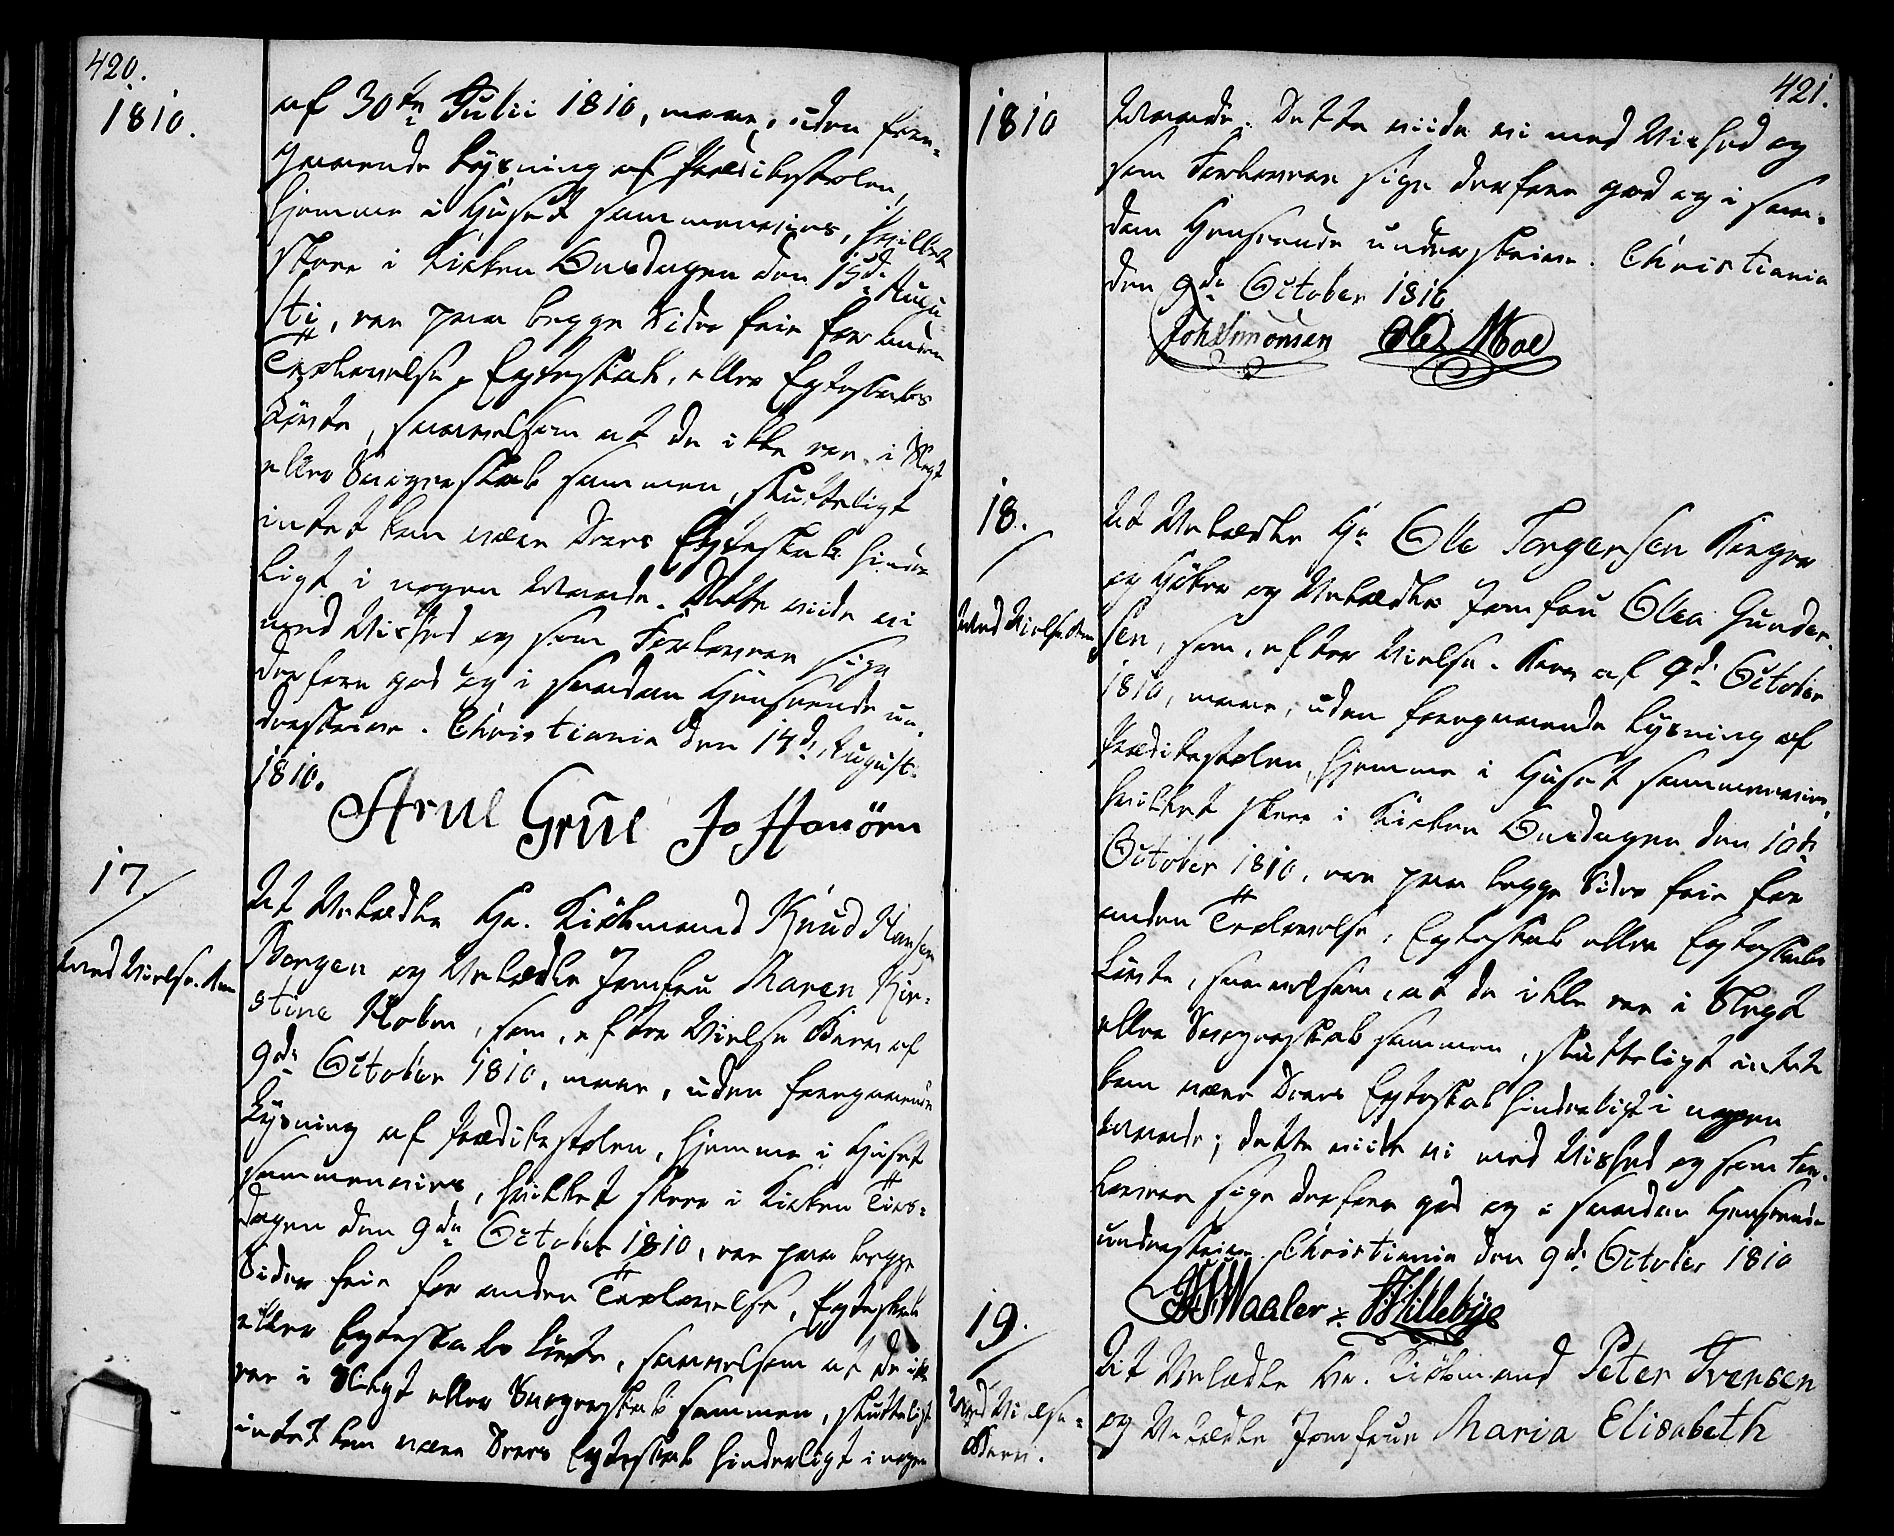 420.
1810.
af 30te Julii 1810, maae, uden fore-
gaaende Lysning af Prædikestolen,
hjemme i Huset sammenvies, hvilket
skeer i Kirken Onsdagen den 15de Augu-
sti, ere paa begge Sider frie for anden
Trolovelse, Egteskab, eller Egteskabs
Løfte, saavelsom at de ikke ere i Slegt
eller Svogerskab sammen, sluttelig
intet kan være Deres Egteskab hinder-
ligt i nogen Maade. Dette vide vi
med Vished og som Forlovere sige
derfore god og i saadan Henseende un-
derskrive. Christiania den 14de August
1810.
Arne Grüe Jo Hauörn
17.
Med Vielse-Brev
At Velædle Hr. Kiøbmand Knud Hansen
Bergen og Velædle Jomfru Maren Kir-
stine Holm, som, efter Vielse Brev af
9de October 1810, maae, uden foregaaende
Lysning af Prædikestolen, hjemme i Huset
sammenvies, hvilket skeer i Kirken Tirs-
dagen den 9de October 1810, ere paa begge
Sider frie for anden Trolovelse, Egteskab
eller Egteskabs Løfte, saavelsom at de ikke
ere i Slegt eller Svogerskab sammen, sluttelig
intet kan være Deres Egteskab hinderligt i nogen
421.
1810
Maade. Dette vide vi med Vished og
som Forlovere sige derfore god og i saa-
dan Henseende underskrive. Christiania
den 9de October 1810.
Joh Simonsen Ole Moe
18.
Med Vielse-Brev
At Velædle Hr. Ole Torgersen Borger
og Høker og Velædle Jomfru Olea Gunder-
sen, som, efter Vielse-Brev af 9de October
1810, maae, uden foregaaende Lysning af
Prædikestolen, hjemme i Huset sammenvies,
hvilket skeer i Kirken Onsdagen den 10de
October 1810, ere paa begge Sider frie for
anden Trolovelse, Egteskab eller Egteskabs
Løfte, saavelsom, at de ikke ere i Slegt
eller Svogerskab sammen, sluttelig intet
kan være Deres Egteskab hinderligt i nogen
Maade; dette vide vi med Vished og som For-
lovere sige derfore god og i saadan Henseende
underskrive. Christiania den 9de October 1810
Waaler Hillebye
19.
Med Vielse-
Brev.
At Velædle Hr. Kiøbmand Peter Iversen
og Velædle Jomfrue Maria Elisabeth